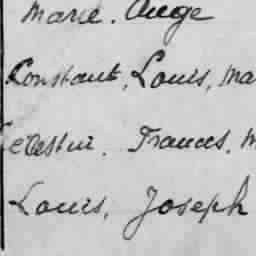 Marie. Ange
Constant, Louis, Ma
Celestin. Frances. M
Louis, Joseph